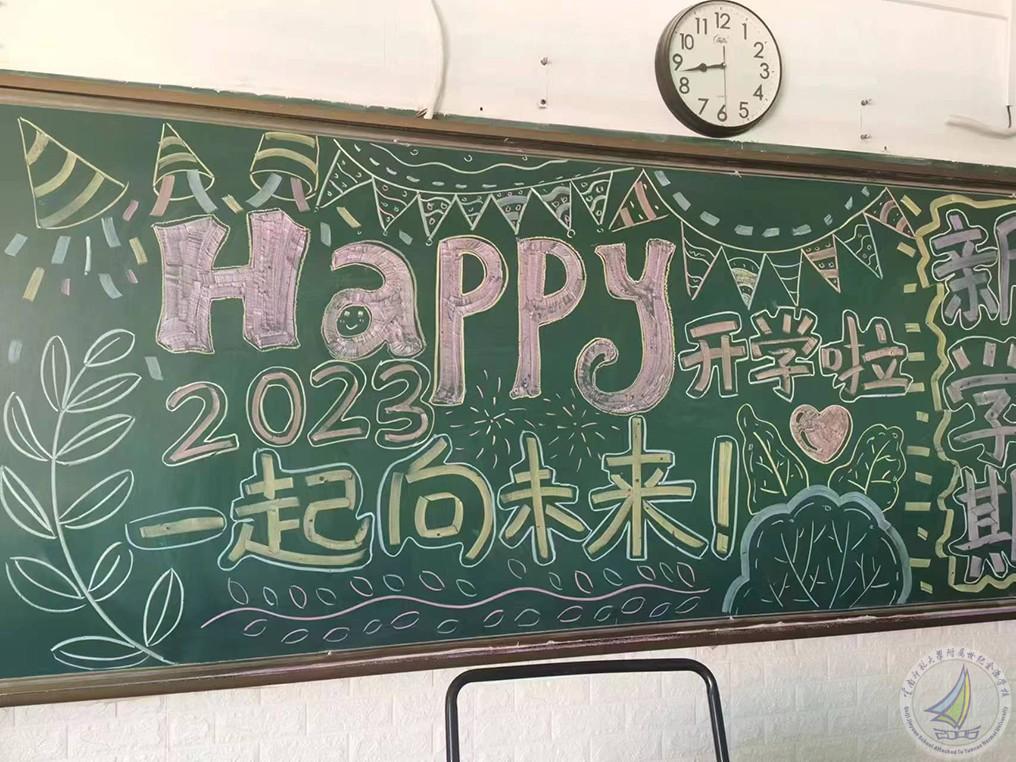 Happy
开学啦
2023
一起向未来!
新
学
期
12
1
2
3
4
5
6
7
8
9
10
11